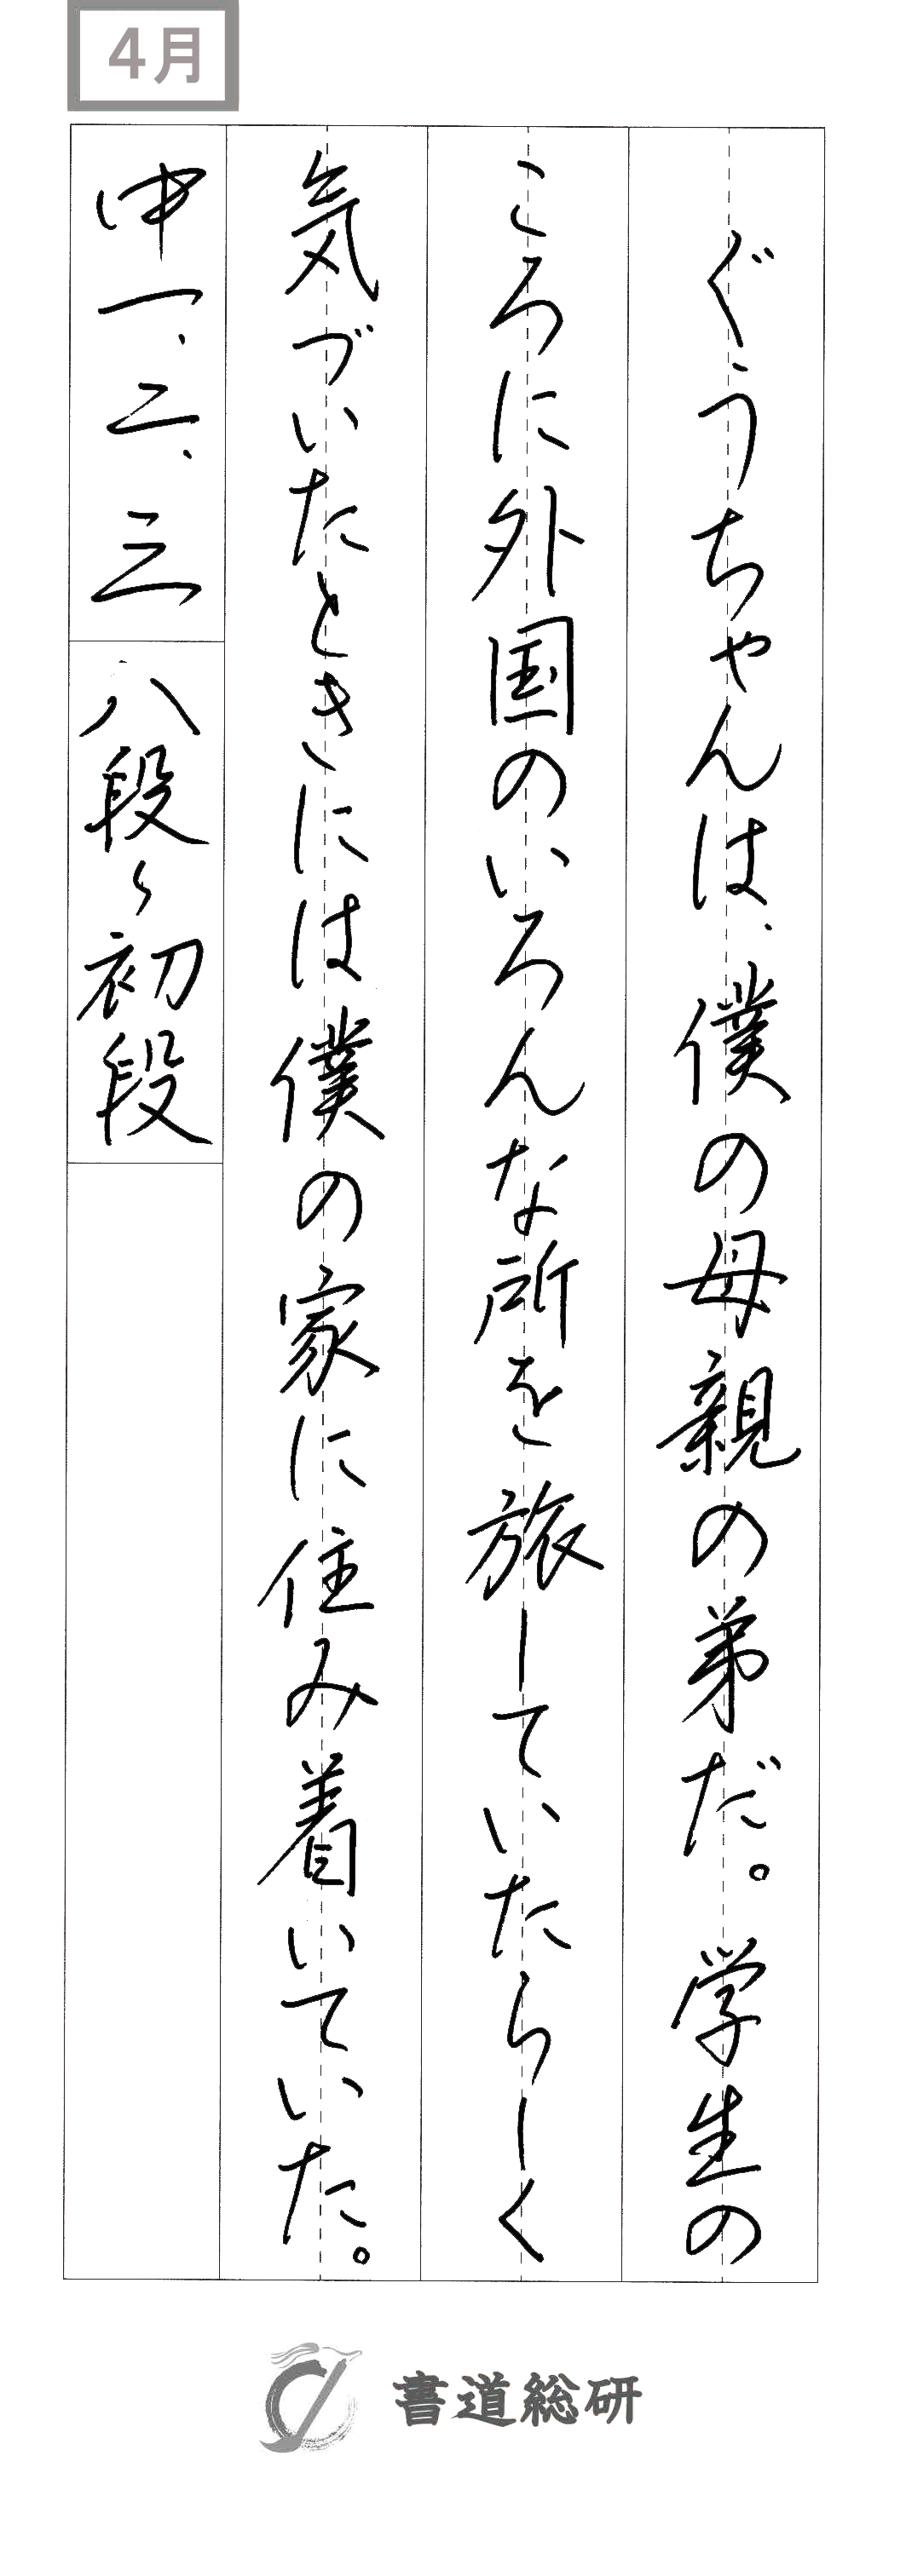 4月
ぐうちゃんは、僕の母親の弟だ。学生の
ころに外国のいろんな所を旅していたらしく
気づいたときには僕の家に住み着いていた。
中一、二、三
八段〜初段
書道総研